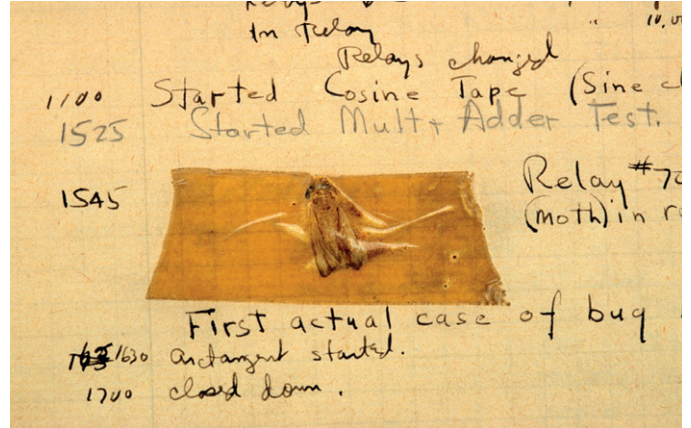 in Relay
10,00
Relays changed
1100 Started Cosine Tape (Sine c
1525 Started Mult+ Adder Test.
1545 Relay #70
(moth) in r
First actual case of bug
1630 arctangent started.
1700 closed down.